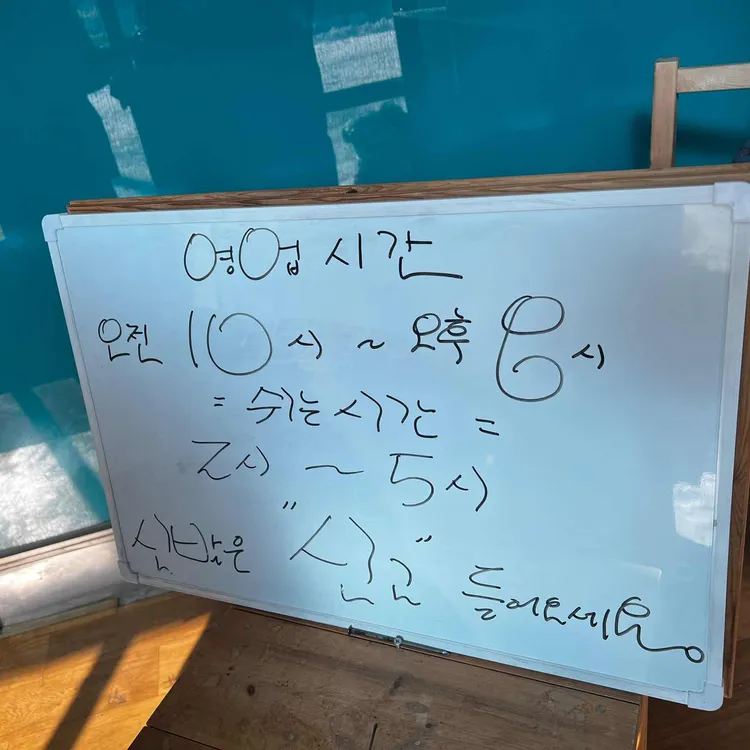 영업 시간
오전 10시 ~ 오후 8시
= 쉬는 시간 =
2시 ~ 5시
신발은 "신고" 들어오세요